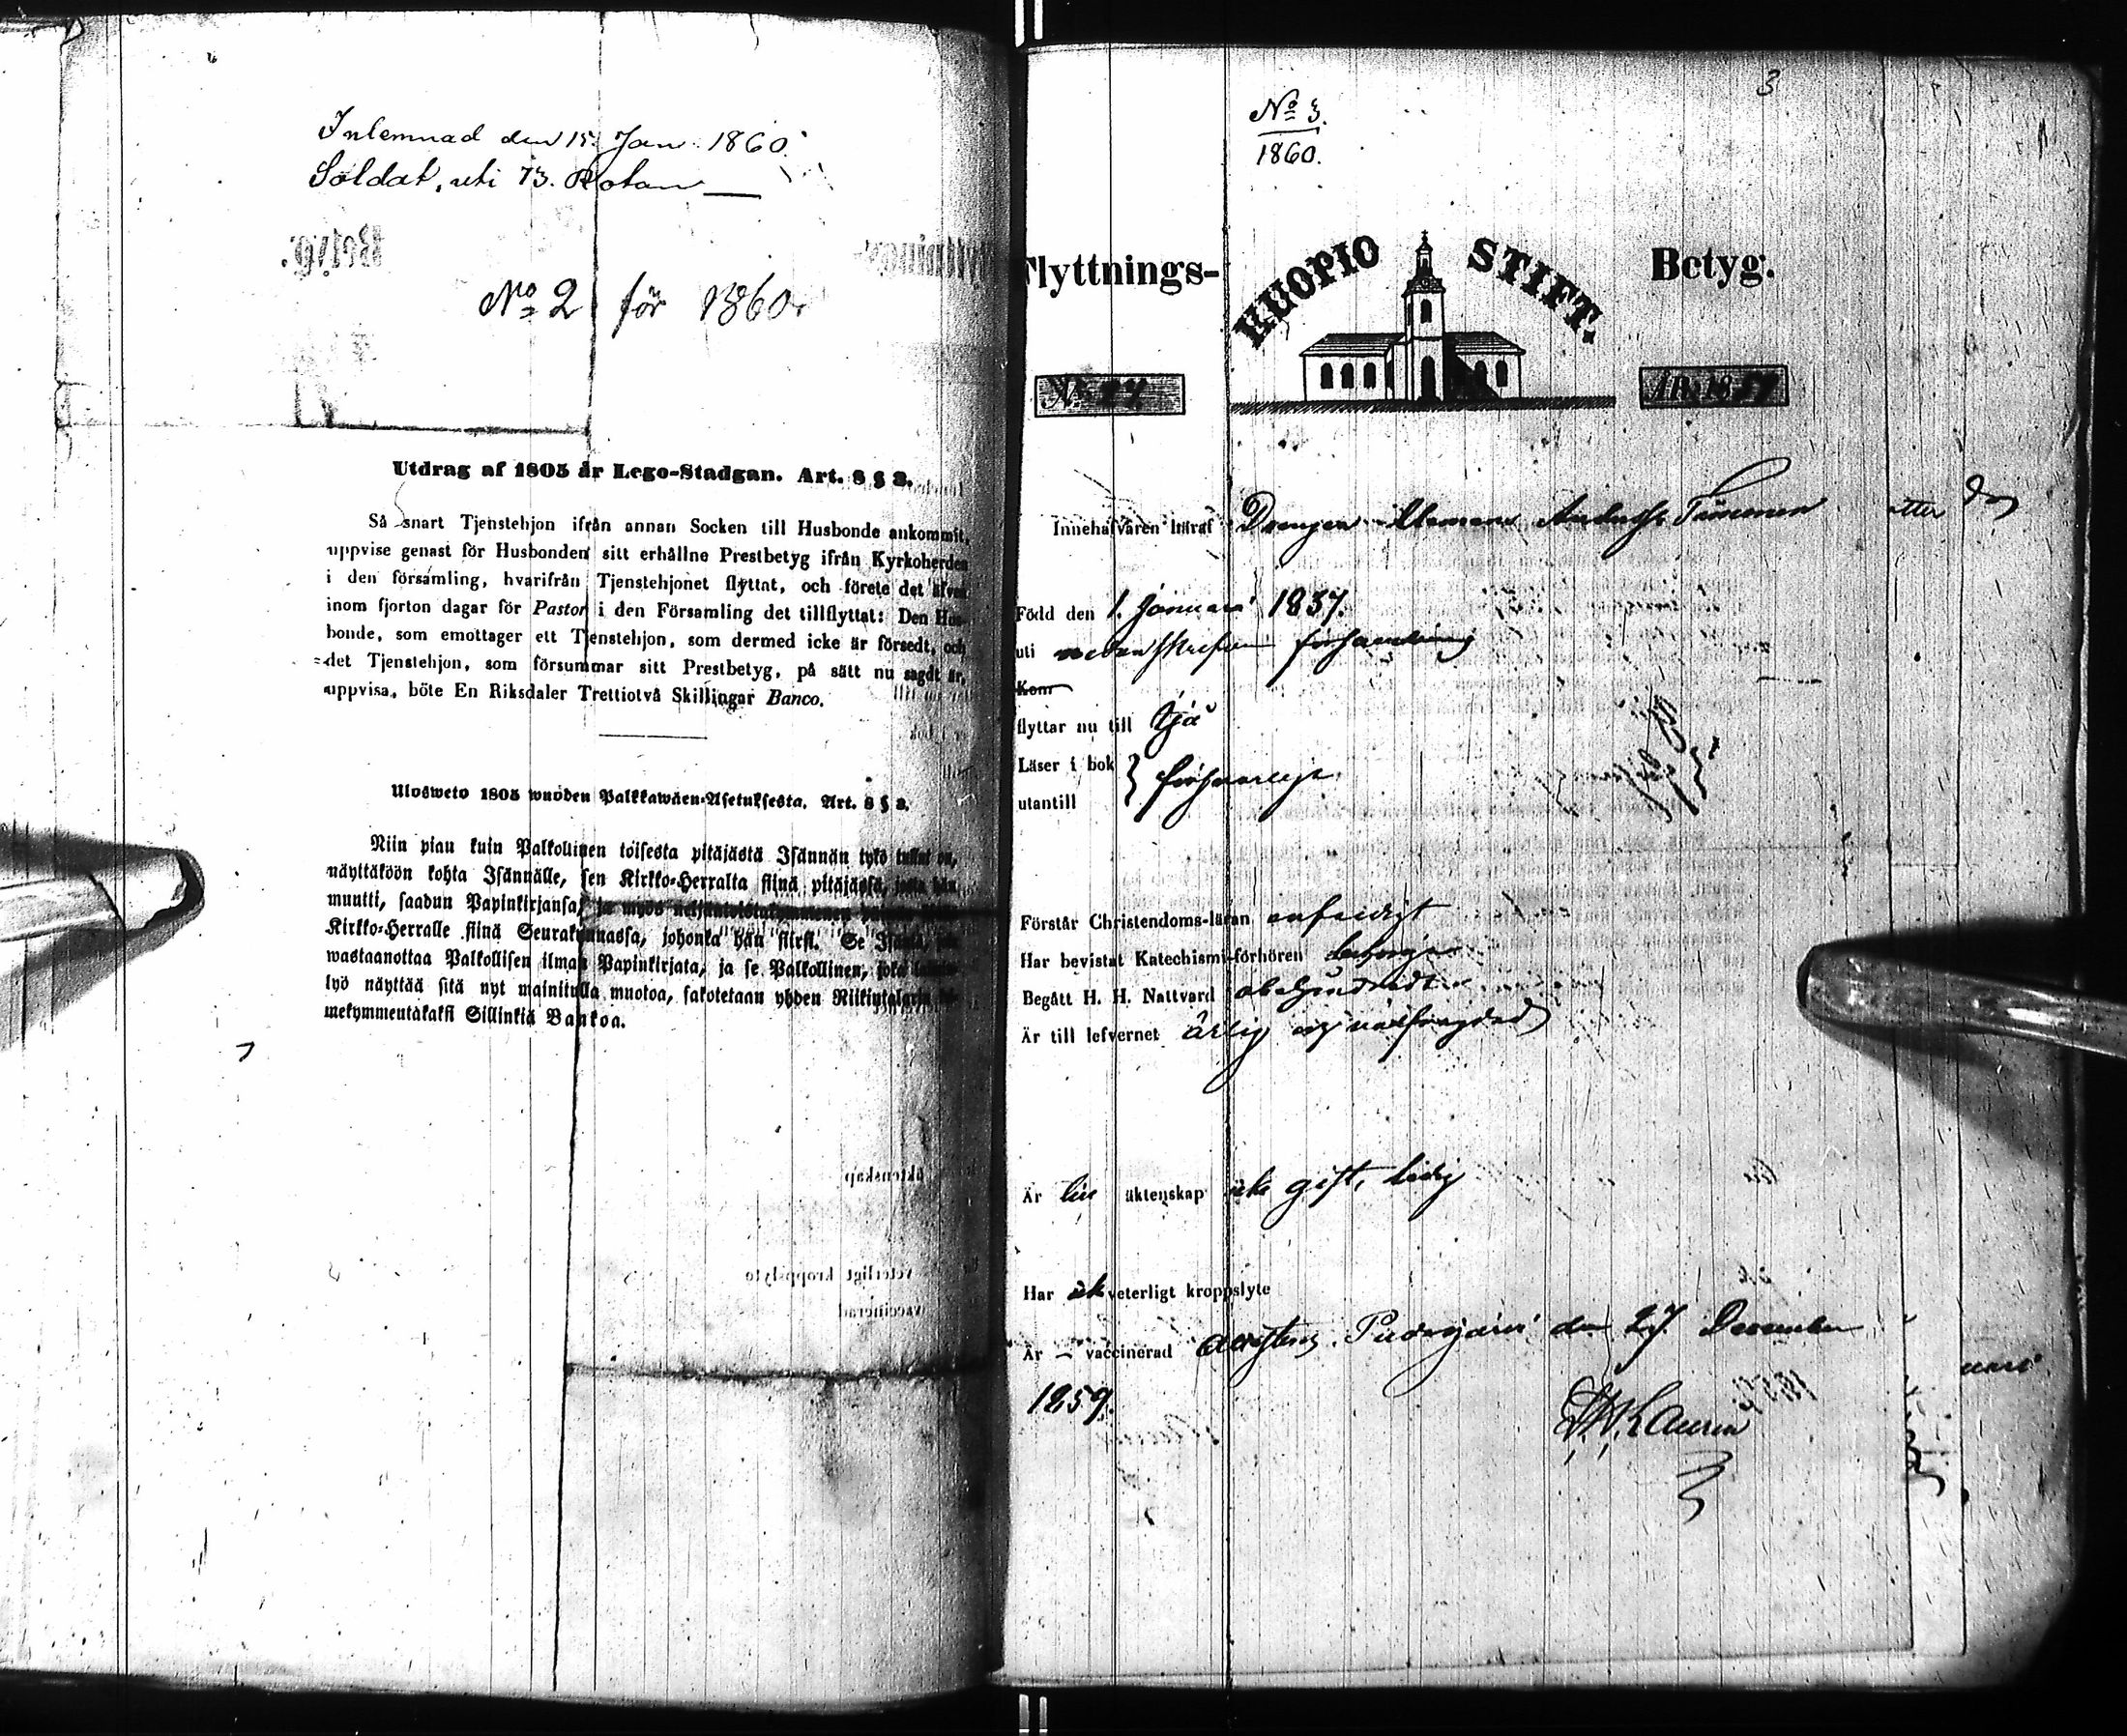 Inlemnad den 15. Jan. 1860.
Soldat, uti 73. Rotan
No 2 för 1860.
Utdrag af 1805 år Lego-Stadgan. Art. 8 § 3.
Så snart Tjenstehjon ifrån annan Socken till Husbonde ankommit,
uppvise genast för Husbonden sitt erhållne Prestbetyg ifrån Kyrkoherden
i den församling, hvarifrån Tjenstehjonet flyttat, och förete det äfven
inom fjorton dagar för Pastor i den Församling det tillflyttat: Den Hus-
bonde, som emottager ett Tjenstehjon, som dermed icke är försedt, och
det Tjenstehjon, som försummar sitt Prestbetyg, på sätt nu sagdt är,
uppvisa, böte En Riksdaler Trettiotvå Skillingar Banco.
Ulosweto 1805 wuoden Palkkawäen-Asetuksesta. Art. 8 § 3.
Niin pian kuin Palkollinen toisesta pitäjästä Isännän tykö tullut on,
näyttäköön kohta Isännälle, sen Kirkko-Herralta siinä pitäjässä, josta hän
muutti, saadun Papinkirjansa, ja myös neljäntoistakymmenen
Kirkko-Herralle siinä Seurakunnassa, johonka hän siirsi. Se Isäntä, joka
wastaanottaa Palkollisen ilman Papinkirjata, ja se Palkollinen, joka
lyö näyttää sitä nyt mainitulla muotoa, sakotetaan yhden Riikintalarin
mekymmentäkaksi Sillinkiä Bankoa.
3
No 3.
1860.
Flyttnings- KUOPIO STIFT. Betyg.
No 27. ÅR 18 59
Innehafvaren häraf Drengen Andersson
Född den 1. Januari 1837.
uti församling
Kom
flyttar nu till
Läser i bok
utantill } försvarligt
Förstår Christendoms-läran
Har bevistat Katechismi-förhören
Begått H. H. Nattvard obehindradt
Är till lefvernet ärlig och
Är till äktenskap icke gift, ledig
Har ick veterligt kroppslyte
Är – vaccinerad attesterar Pudasjärvi den 27. December
1859.